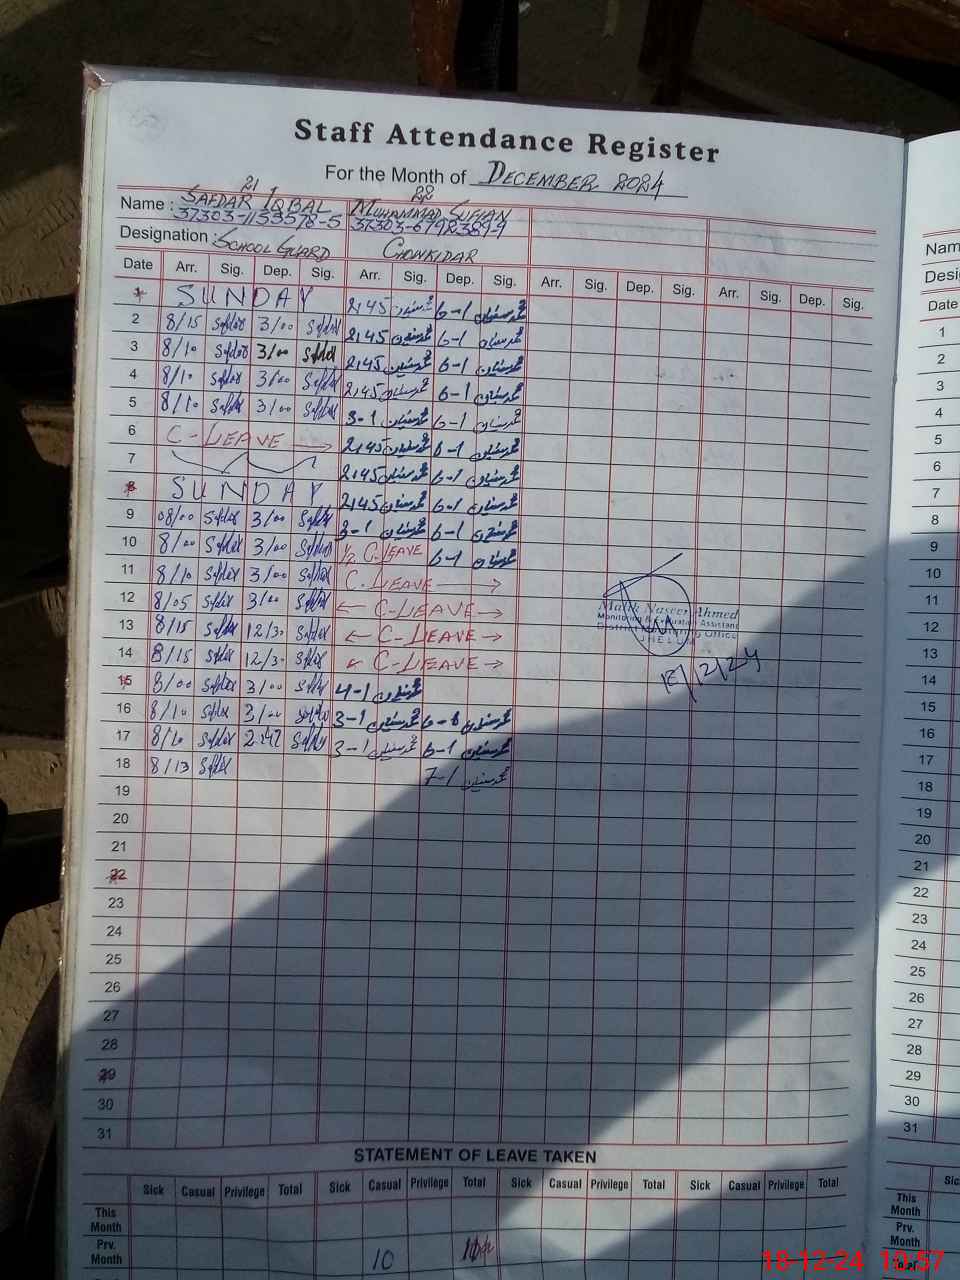 Staff Attendance Register
For the Month of DECEMBER 2024
21 22
Name : SAFDAR IQBAL MUHAMMAD SUFIAN
37303-1153578-5
Designation : SCHOOL GUARD CHOWKIDAR
Date Arr. Sig. Dep. Sig. Arr. Sig. Dep. Sig. Arr. Sig. Dep. Sig. Arr. Sig. Dep. Sig.
1 SUNDAY 2,45 محمد سفیان 6-1 محمد سفیان
2 8/15 Safdar 3/00 Safdar 2,45 محمد سفیان 6-1 محمد سفیان
3 8/10 Safdar 3/00 Safdar 2,45 محمد سفیان 6-1 محمد سفیان
4 8/10 Safdar 3/00 Safdar 2,45 محمد سفیان 6-1 محمد سفیان
5 8/10 Safdar 3/00 Safdar 3-1 محمد سفیان 6-1 محمد سفیان
6 C-LEAVE 2,45 محمد سفیان 6-1 محمد سفیان
7 2,45 محمد سفیان 6-1 محمد سفیان
8 SUNDAY 2,45 محمد سفیان 6-1 محمد سفیان
9 08/00 Safdar 3/00 Safdar 3-1 محمد سفیان 6-1 محمد سفیان
10 8/00 Safdar 3/00 Safdar 1/2 C-LEAVE 6-1 محمد سفیان
11 8/10 Safdar 3/00 Safdar C-LEAVE
12 8/05 Safdar 3/00 Safdar C-LEAVE
13 8/15 Safdar 12/30 Safdar C-LEAVE
14 8/15 Safdar 12/30 Safdar C-LEAVE
15 8/00 Safdar 3/00 Safdar 4-1 محمد سفیان
16 8/10 Safdar 3/00 Safdar 3-1 محمد سفیان محمد سفیان
17 8/10 Safdar Safdar 3-1 محمد سفیان 6-1 محمد سفیان
18 8/13 Safdar 7-1 محمد سفیان
19
20
21
22
23
24
25
26
27
28
29
30
31
Malik Naseer Ahmed
Monitoring & Evaluation Assistant
District Monitoring Office
JHELUM
18/12/24
STATEMENT OF LEAVE TAKEN
Sick Casual Privilege Total Sick Casual Privilege Total Sick Casual Privilege Total Sick Casual Privilege Total
This Month
Prv. Month 10
Name
Date
1
2
3
4
5
6
7
8
9
10
11
12
13
14
15
16
17
18
19
20
21
22
23
24
25
26
27
28
29
30
31
This Month
Prv. Month
18-12-24 10:57